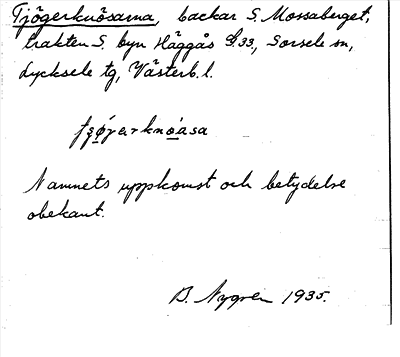 Tjögerknösarna, backar S. Mossaberget,
trakten S. byn Häggås S. 33, Sorsele sn,
Lycksele tg, Västerb. l.
Namnets uppkomst och betydelse
obekant.
B. Nygren 1935.